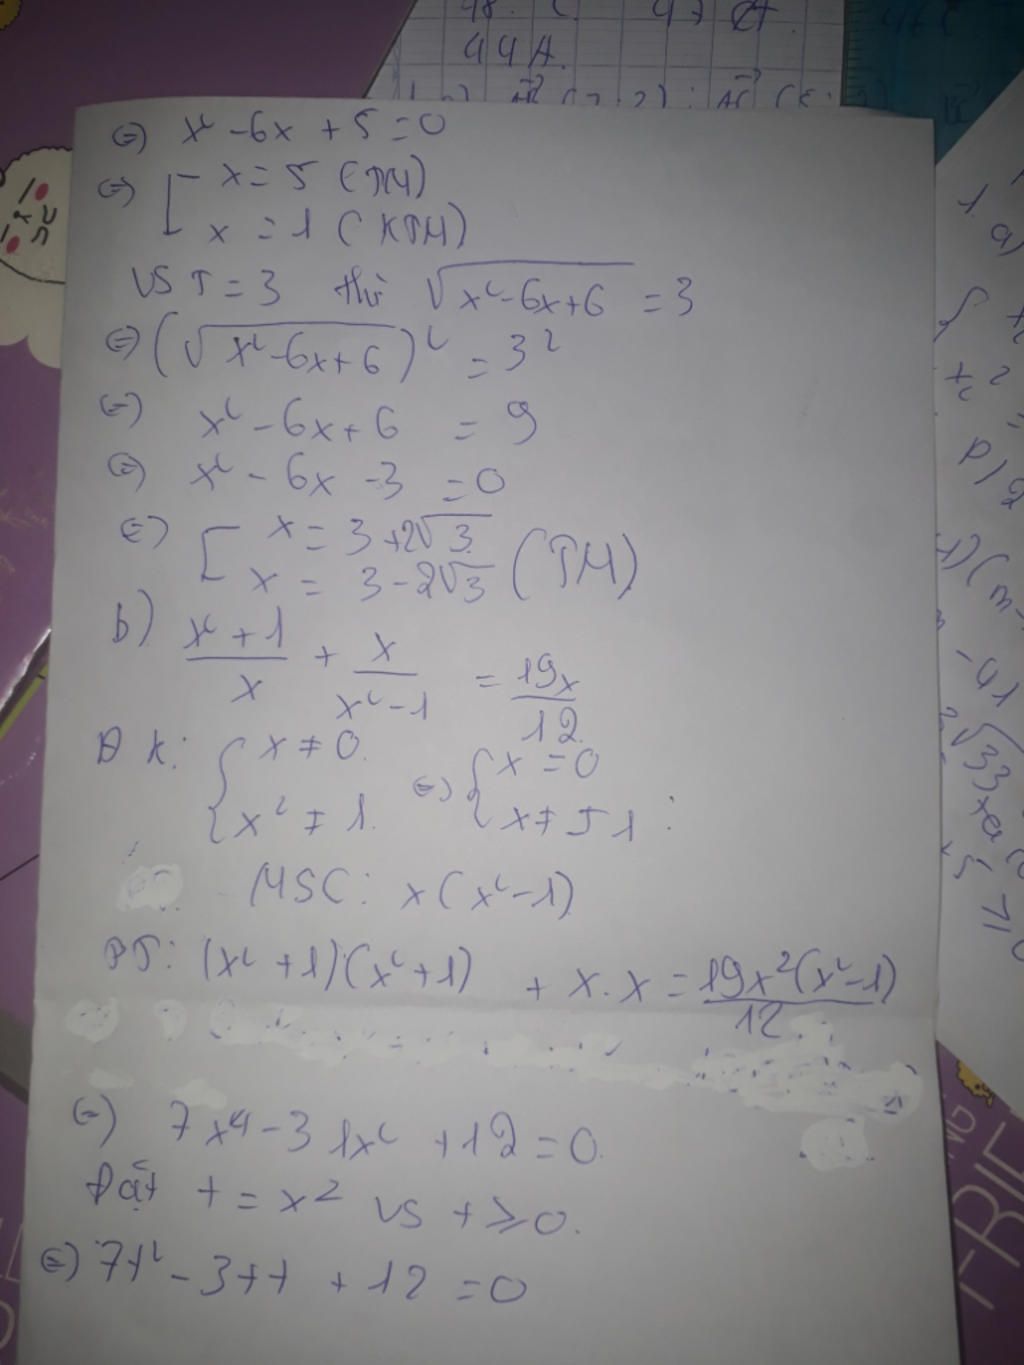 48. C 47 A.
44A.
⇔) x² - 6x + 5 = 0
⇔) [ x = 5 (TM)
x = 1 (KTM)
VS T = 3 thì √(x² - 6x + 6) = 3
⇔) (√(x² - 6x + 6))² = 3²
⇔) x² - 6x + 6 = 9
⇔) x² - 6x - 3 = 0
⇔) [ x = 3 + 2√3
x = 3 - 2√3 (TM)
b) (x² + 1)/x + x/(x² - 1) = 19x/12
ĐK: { x ≠ 0
x² ≠ 1
⇔) { x = 0
x ≠ ±1
MSC: x(x² - 1)
PT: (x² + 1)(x² + 1) + x.x = 19x²(x² - 1)/12
⇔) 7x⁴ - 31x² + 12 = 0
Đặt t = x² vs t ≥ 0.
⇔) 7t² - 3tt + 12 = 0
1. a)